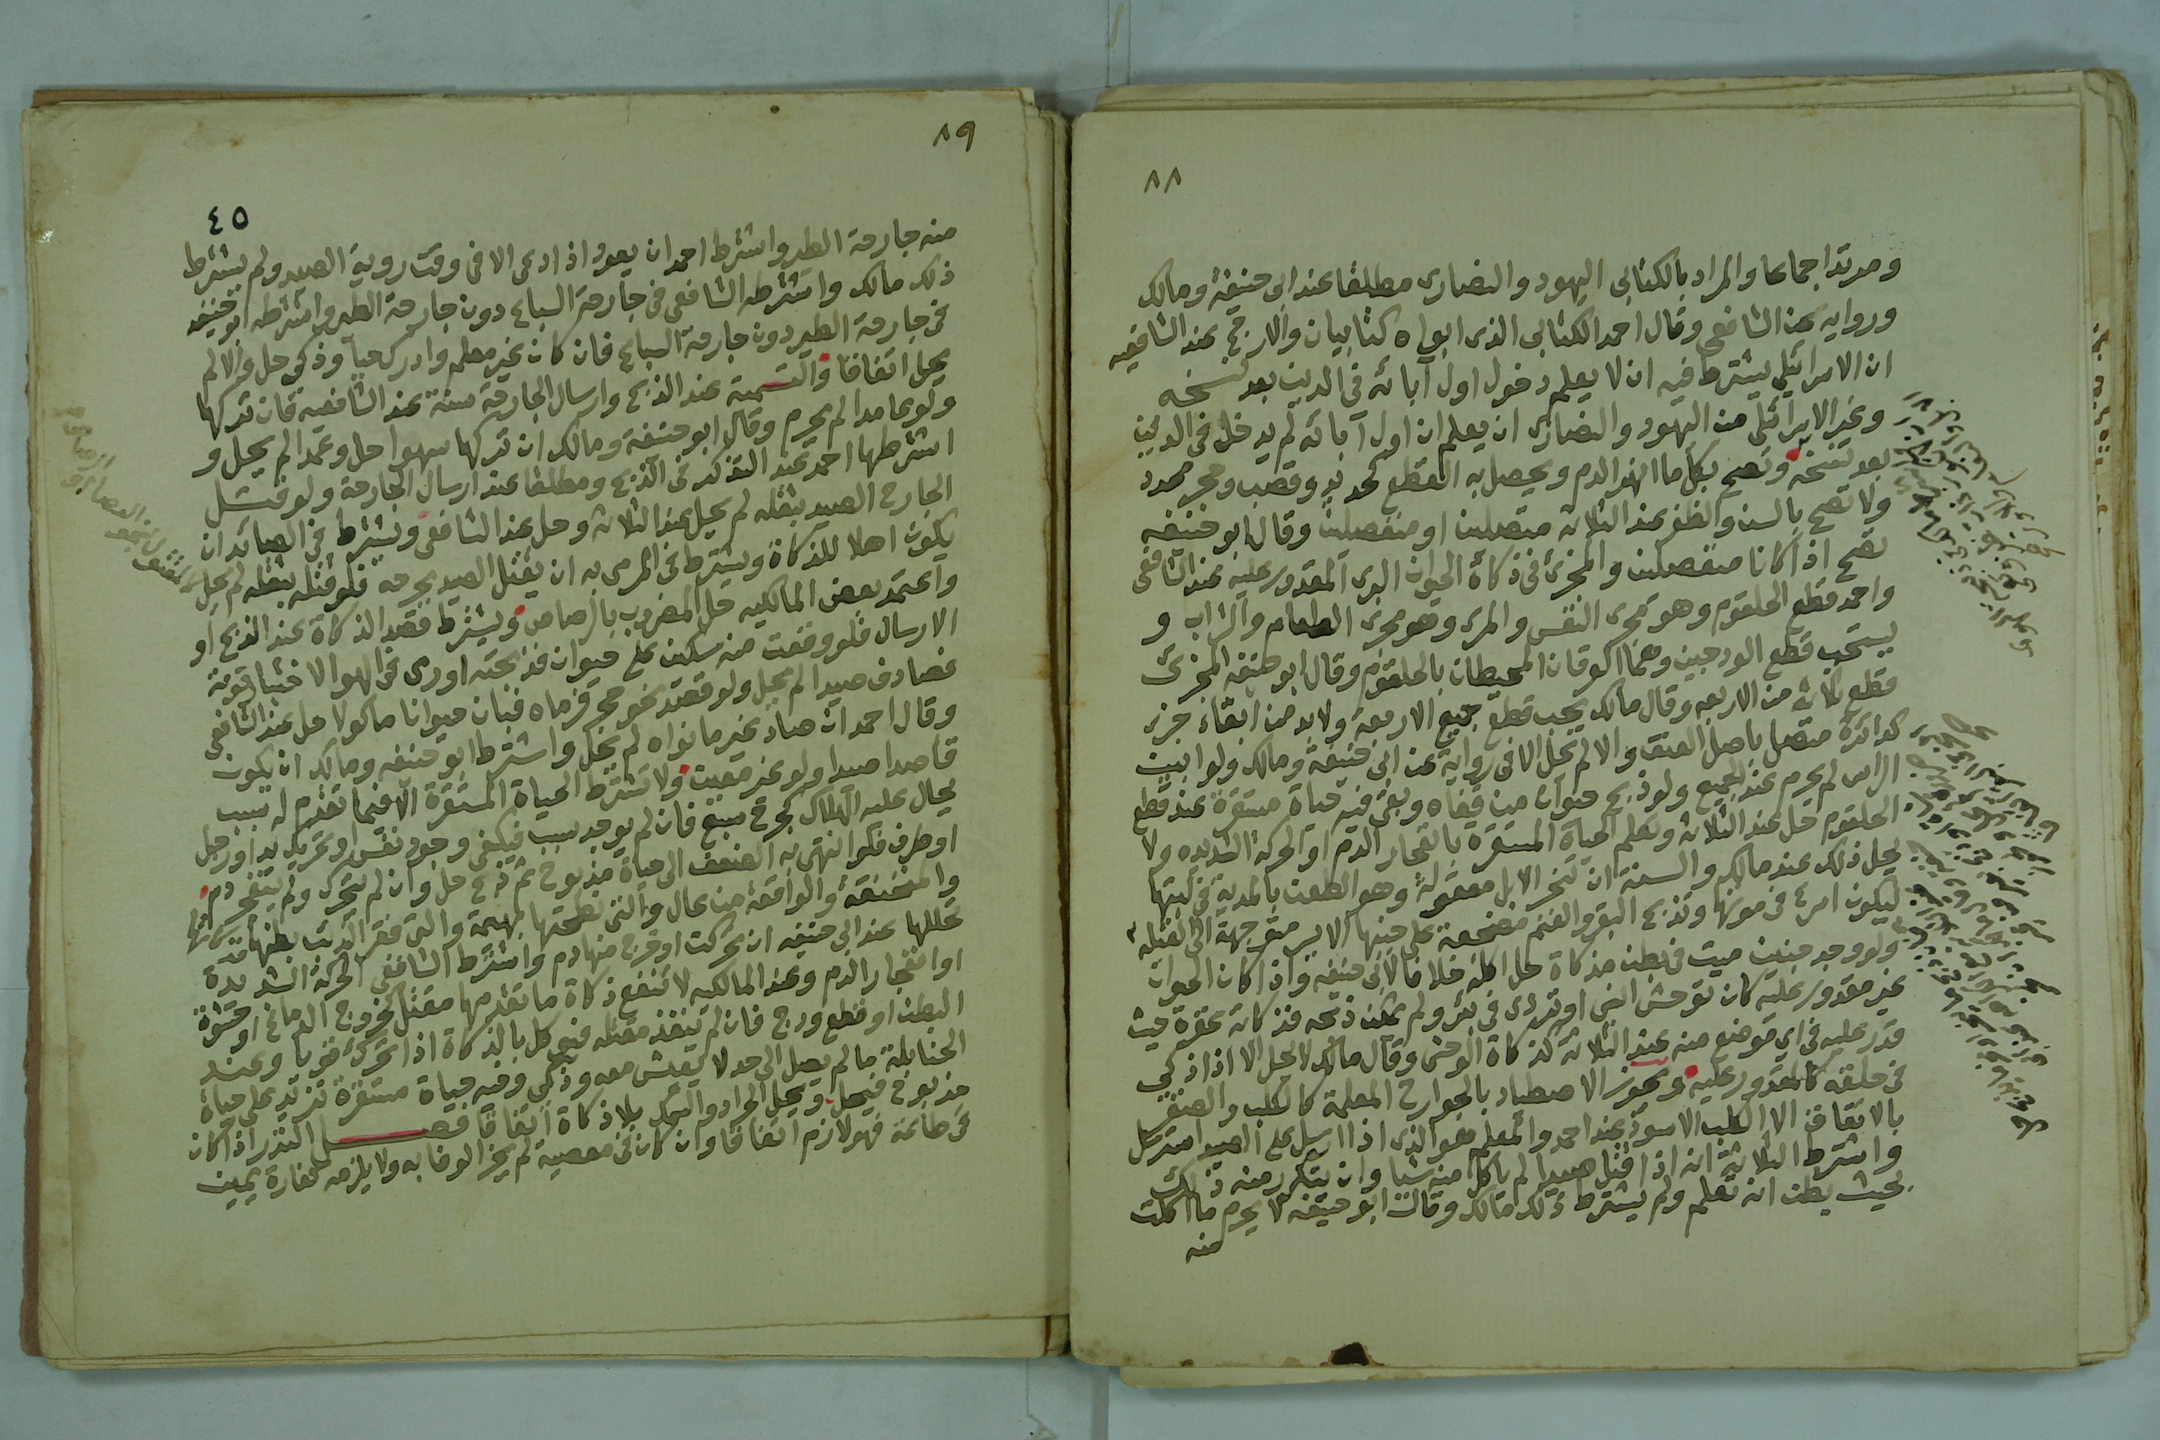 ٨٨
ومرتد اجماعا والمراد بالكتابى اليهود والنصارى مطلقا عند ابى حنيفة ومالك
ورواية عن الشافعى وقال احمد الكتابى الذى ابواه كتابيان والارجح عند الشافعيه
ان الاسرائيلى يشترط فيه ان لا يعلم دخول اول آبائه فى الدين بعد نسخه
وغير الاسرائيلى من اليهود والنصارى ان يعلم ان اول آبائه لم يدخل فى الدين
بعد نسخه وتصح بكل ما انهر الدم ويحصل به القطع كحديد وقصب وحجر محدد
ولا تصح بالسن والظفر عند الثلاثة متصلين او منفصلين وقال ابو حنيفه
تصح اذا كانا منفصلين والمجزئ فى ذكاة الحيوان البرى المقدور عليه عند الشافعى
واحمد قطع الحلقوم وهو مجرى النفس والمرى وهو مجرى الطعام والشراب و
يستحب قطع الودجين وهما عرقان المحيطان بالحلقوم وقال ابو حنيفه المجزئ
قطع ثلاثة من الاربعه وقال مالك يجب قطع جميع الاربعة ولا بد من ابقاء جزء
كدائرة متصل باصل العنق والا لم يحل الا فى رواية عن ابى حنيفة ومالك ولو ابين
الراس لم يحرم عند الجميع ولو ذبح حيوان من قفاه وبقى فيه حياة مستقرة عند قطع
الحلقوم حل عند الثلاثة وتعلم الحياة المستقره بانفجار الدم او الحركة الشديده ولا
يحل ذلك عند مالك والسنة ان تنحر الابل معقولة وهو الطعن بالمدية فى لبتها
ليكون اسرع فى موتها وتذبح البقر والغنم مضجعة على جنبها الايسر متوجهة الى القبله
ولو وجد جنين ميت فى بطن مذكاة حل اكله خلافا لابى حنيفه واذا كان الحيوان
غير مقدور عليه كان توحش انسى او تردى فى بئر ولم يمكن ذبحه فذكاته عقره حيث
قدر عليه فى اى موضع منه عند الثلاثة كذكاة الوحش وقال مالك لا يحل الا اذا ذكى
فى حلقه كالمقدور عليه ويجوز الاصطياد بالجوارح المعلمة كالكلب والصقر
بالاتفاق الا الكلب الاسود عند احمد والمعلم هو الذى اذا ارسل على الصيد استرسل
واشترط الثلاثة انه اذا قتل صيدا لم ياكل منه شيا وان يتكرر منه ذلك
بحيث يظن انه تعلم ولم يشترط ذلك مالك وقال ابو حنيفه لا يحرم ما اكلت
منه
٨٩
٤٥
منه جارحة الطير واشترط احمد ان يعود اذا دعى الا فى وقت روية الصيد ولم يشترط
ذلك مالك واشترطه الشافعى فى جارحة السباع دون جارحة الطير واشترطه ابو حنيفه
فى جارحة الطير دون جارحة السباع فان كان غير معلم وادرك حيا وذكى حل والا لم
يحل اتفاقا والتسمية عند الذبح وارسال الجارحة سنة عند الشافعيه فان تركها
ولو عامدا لم يحرم وقال ابو حنيفة ومالك ان تركها سهوا حل وعمدا لم يحل و
اشترطها احمد عند التذكر فى الذبح ومطلقا عند ارسال الجارحة ولو قتل
الجارح الصيد بثقله لم يحل عند الثلاثة وحل عند الشافعى ويشترط فى الصائد ان
يكون اهلا للذكاة ويشترط فى المرمى به ان يقتل الصيد بجرحه فلو قتله بثقله لم يحل
واعتمد بعض المالكيه حل المضروب بالرصاص ويشترط قصد الذكاة عند الذبح او
الارسال فلو وقعت منه سكين على حيوان فذبحته او رمى فى الهوا لاختبار قوته
فصادف صيدا لم يحل ولو قصد نحو حجر فرماه فبان حيوانا ماكولا حل عند الشافعى
وقال احمد ان صاد غير ما نواه لم يحل واشترط ابو حنيفه ومالك ان يكون
قاصدا صيدا ولو غير معين ولا تشترط الحياة المستقرة الا فيما تقدم له سبب
يحال عليه الهلاك كجرح سبع فان لم يوجد سبب فيكفى وجود نفس او تحريك يد او رجل
او طرف فلو انتهى به الضعف الى حياة مذبوح ثم ذبح حل وان لم يتحرك ولم ينفجر دم
والمنخنقة والواقعة من عال والتى نطحتها بهيمة والتى فقر الذئب بطنها
تحللها عند ابى حنيفه ان تحركت او خرج منها دم واشترط الشافعى الحركة الشديدة
او انفجار الدم وعند المالكيه لا تنفع ذكاة ما تقدم منها مقتل كخروج الدماغ او حشوة
البطن او قطع ودج فان لم تنفذ مقتله فيوكل بالذكاة اذا تحرك قويا وعند
الحنابلة ما لم يصل الى حد لا يعيش معه وذكى وفيه حياة مستقرة تزيد على حياة
مذبوح فيحل ويحل الجراد والسمك بلا ذكاة اتفاقا فصل النذر اذا كان
فى طاعة فهو لازم اتفاقا وان كان فى معصية لم يجز الوفا به ولا يلزمه كفارة يمين